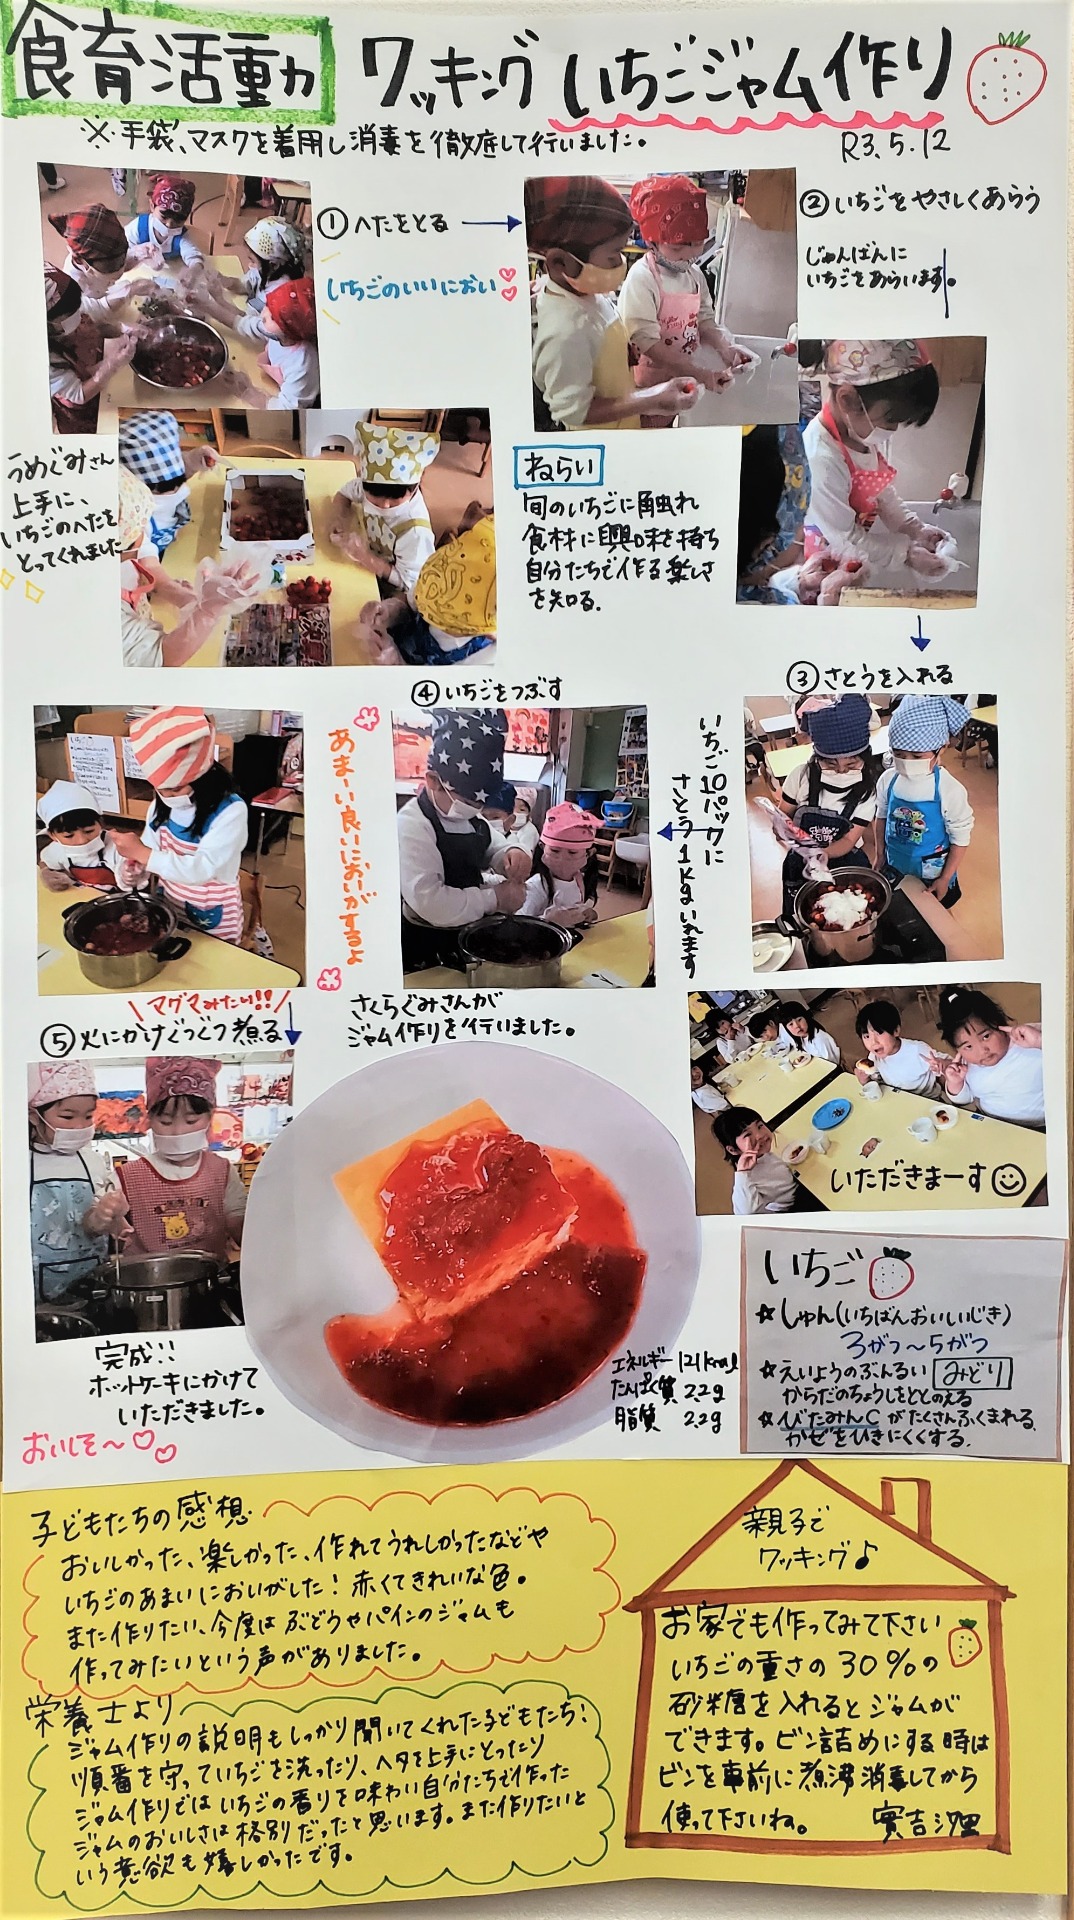 食育活動 クッキング いちごジャム作り
※手袋、マスクを着用し消毒を徹底して行いました。
R3.5.12
①へたをとる
いちごのいいにおい
②いちごをやさしくあらう
じゅんばんに
いちごをあらいます。
うめぐみさん
上手に、
いちごのへたを
とってくれました
ねらい
旬のいちごに触れ
食材に興味を持ち
自分たちで作る楽しさ
を知る。
③さとうを入れる
いちご10パックに
さとう1kgいれます
④いちごをつぶす
あまーい良いにおいがするよ
さくらぐみさんが
ジャム作りを行いました。
マグマみたい!!
⑤火にかけぐつぐつ煮る
いただきまーす
完成!!
ホットケーキにかけて
いただきました。
おいしそ〜
エネルギー 121kcal
たんぱく質 2.2g
脂質 2.2g
いちご
☆しゅん(いちばんおいしいじき)
3がつ〜5がつ
☆えいようのぶんるい みどり
からだのちょうしをととのえる
☆びたみんCがたくさんふくまれる
かぜをひきにくくする。
子どもたちの感想
おいしかった、楽しかった、作れてうれしかったなどや
いちごのあまいにおいがした！赤くてきれいな色。
また作りたい、今度はぶどうやパインのジャムも
作ってみたいという声がありました。
栄養士より
ジャム作りの説明もしっかり聞いてくれた子どもたち！
順番を守っていちごを洗ったり、ヘタを上手にとったり
ジャム作りではいちごの香りを味わい自分たちで作った
ジャムのおいしさは格別だったと思います。また作りたいと
いう意欲も嬉しかったです。
親子で
クッキング♪
お家でも作ってみて下さい
いちごの重さの30%の
砂糖を入れるとジャムが
できます。ビン詰めにする時は
ビンを事前に煮沸消毒してから
使って下さいね。